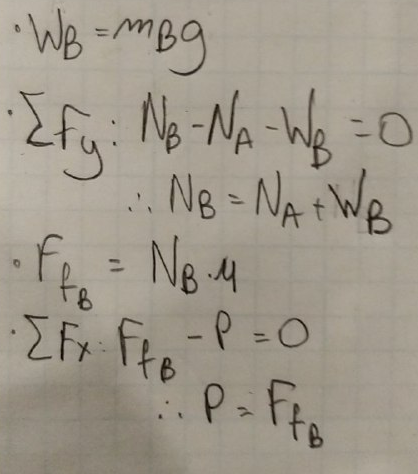 · W_B = m_B g
· ΣF_y: N_B - N_A - W_B = 0
∴ N_B = N_A + W_B
· F_f_B = N_B · μ
· ΣF_x: F_f_B - P = 0
∴ P = F_f_B